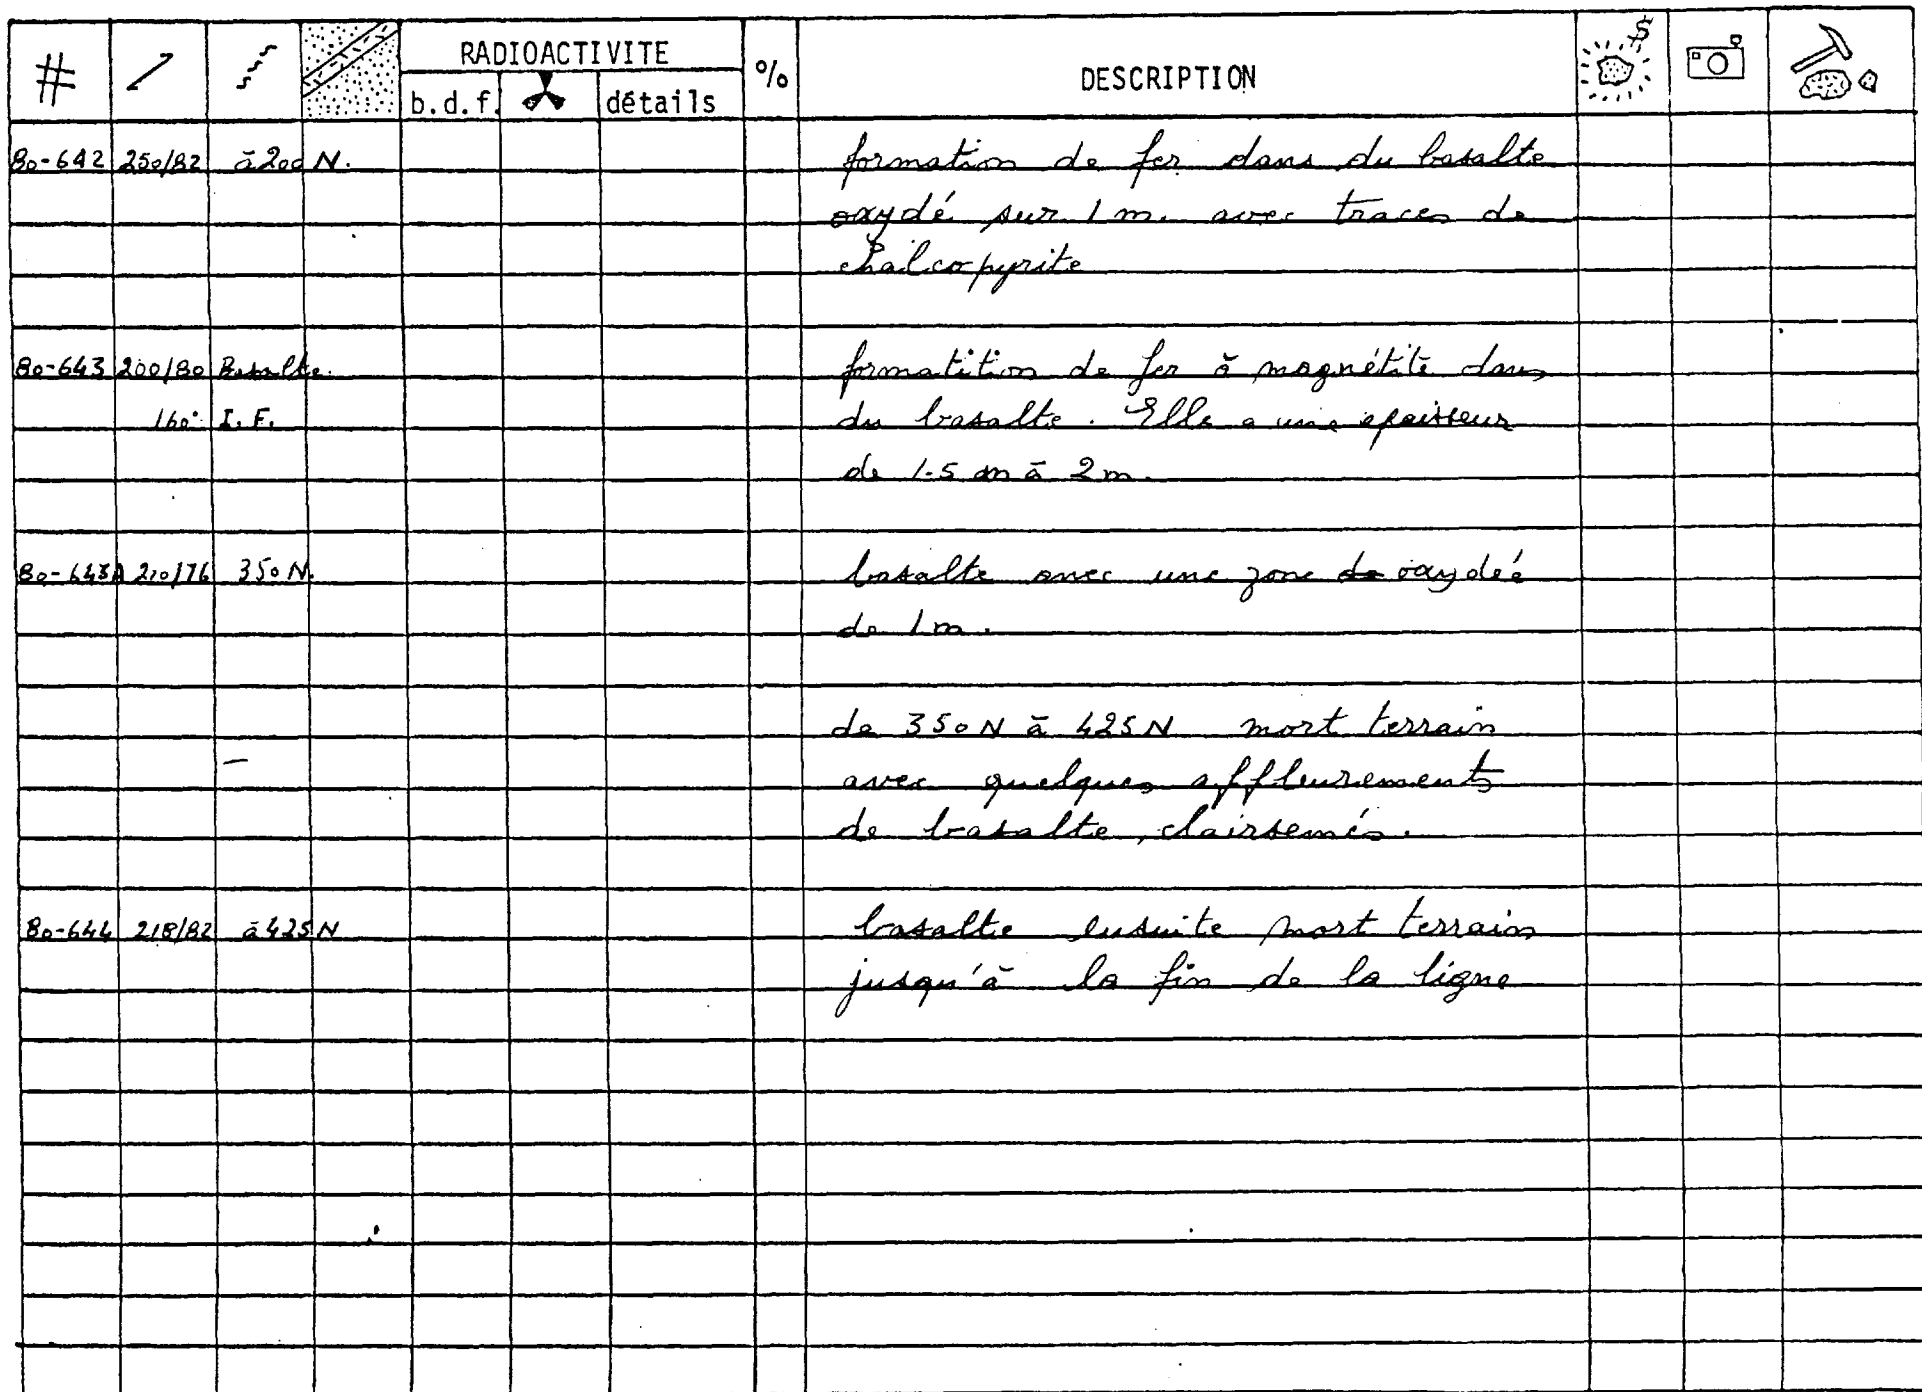 # RADIOACTIVITE % DESCRIPTION $
b.d.f. détails
80-642 250/82 à 200 N. formation de fer dans du basalte
oxydé sur 1 m. avec traces de
chalcopyrite
80-643 200/80 Basalte. formatition de fer à magnétite dans
160° I.F. du basalte. Elle a une epaisseur
de 1.5 m à 2 m.
80-643A 210/76 350 N. basalte avec une zone de oxydée
de 1 m.
de 350 N à 425 N mort terrain
avec quelques affleurements
de basalte, clairsemés.
80-644 218/82 à 425 N basalte ensuite mort terrain
jusqu'à la fin de la ligne